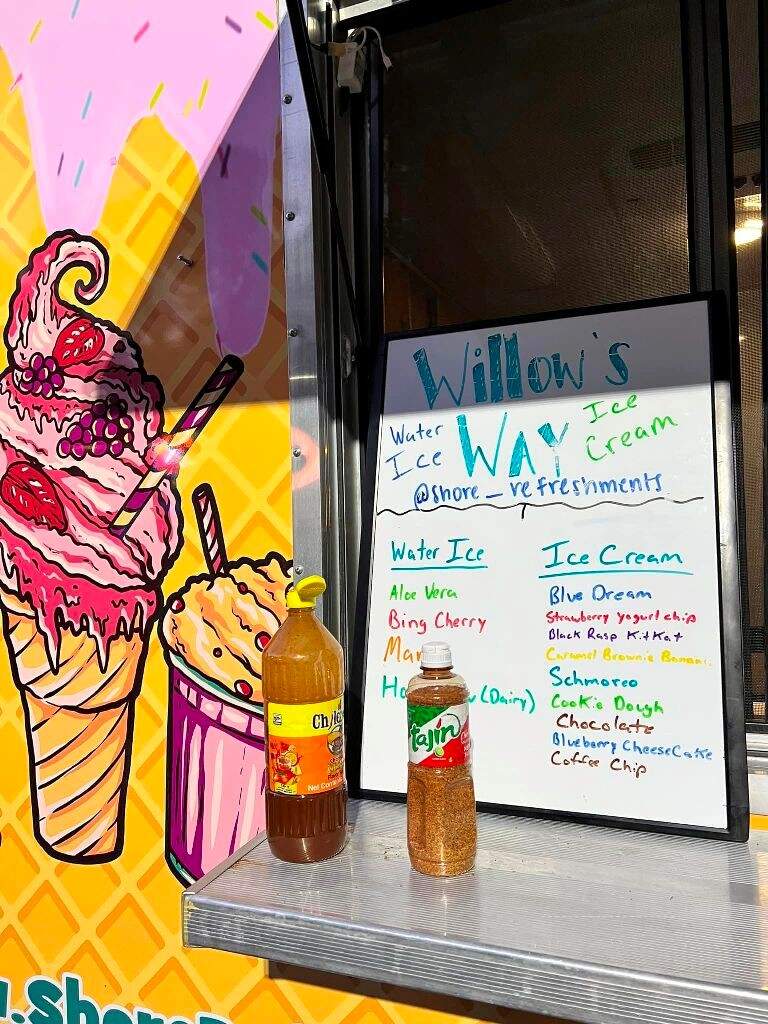 Willow's
Water Ice
WAY
Ice Cream
@shore_refreshments
Water Ice
Aloe Vera
Bing Cherry
(Dairy)
Ice Cream
Blue Dream
Strawberry Yogurt chip
Black Rasp KitKat
Caramel Brownie
Schmoreo
Cookie Dough
Chocolate
Blueberry CheeseCake
Coffee Chip
Tajín